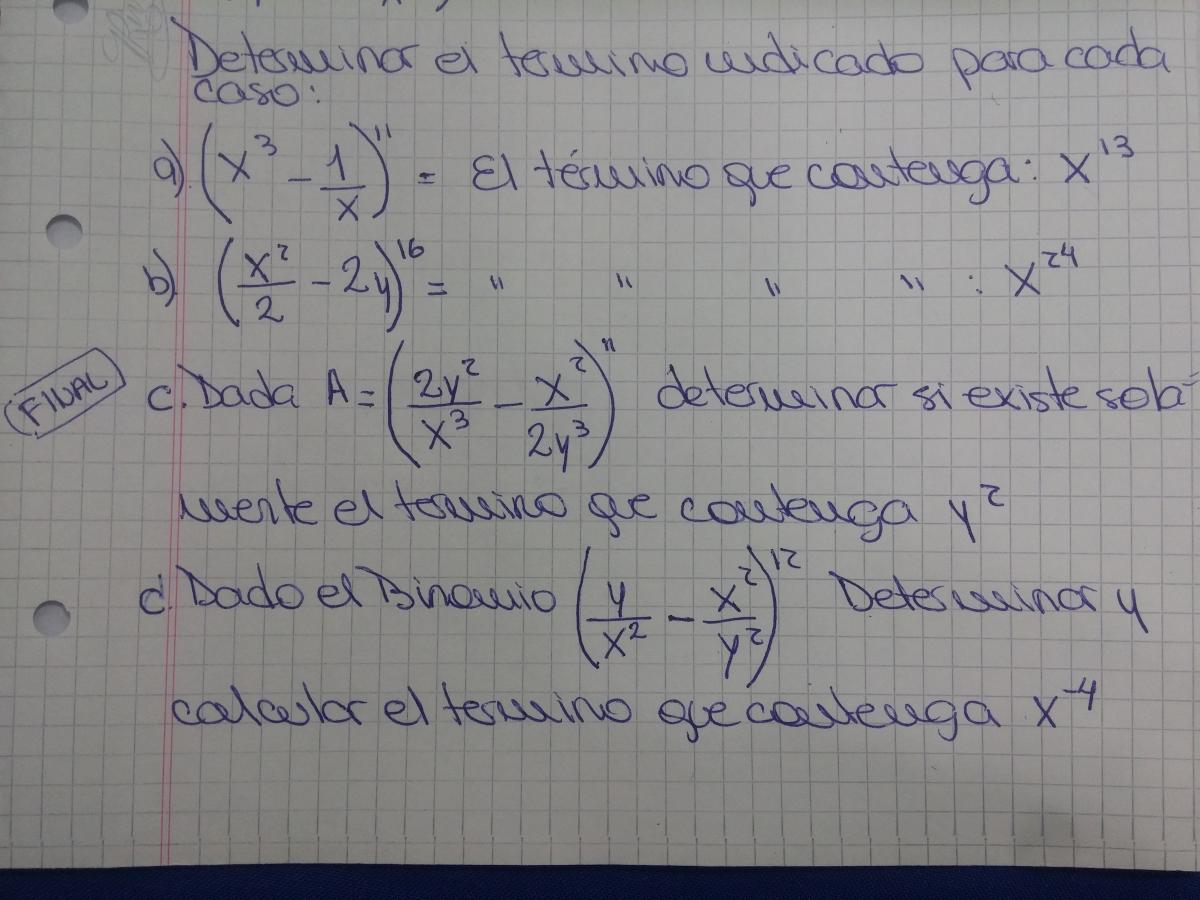 Determinar el termino indicado para cada
caso:
a) (x³ - 1/x)¹¹ = El término que contenga: x¹³
b) (x²/2 - 2y)¹⁶ = " " " " : x²⁴
FINAL
c. Dada A = (2y²/x³ - x²/2y³)¹¹ determinar si existe sola=
mente el termino que contenga y²
d. Dado el Binomio (y/x² - x²/y²)¹² Determinar y
calcular el termino que contenga x⁻⁴